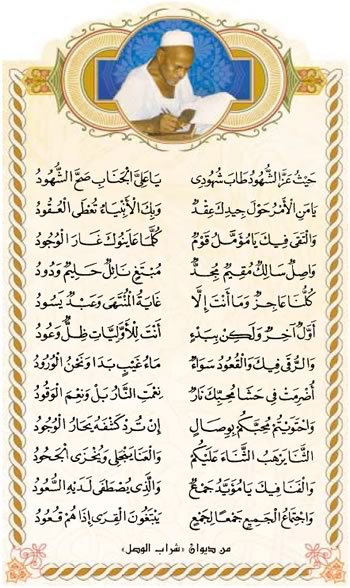 حَيْثُ عَزَّ الشُّهُودُ طَابَ شُهُودِى يَا عَلِىَّ الْجَنَابِ صَحَّ الشُّهُودُ
يَا مَنِ الْأَمْرُ حَوْلَ جِيدِكَ عِقْدٌ وَبِكَ الْأَنْبِيَاءُ تُعْطَى الْعُقُودُ
وَالْتَقَى فِيكَ يَا مُؤَمَّلُ قَوْمٌ كُلَّمَا عَايَنُوكَ غَارَ الْوُجُودُ
وَاصِلٌ سَالِكٌ مُقِيمٌ مُجِدٌّ مُبْتَغٍ نَائِلٌ حَلِيمٌ وَدُودُ
كُلُّنَا عَاجِزٌ وَمَا أَنْتَ إِلَّا غَايَةُ الْمُنْتَهَى وَعَبْدٌ يَسُودُ
أَوَّلٌ آخِرٌ وَلَكِنْ بِبَدْءٍ أَنْتَ لِلْأَوَّلِيَّاتِ ظِلٌّ وَعُودُ
وَالرُّقِى فِيكَ وَالْقُعُودُ سَوَاءٌ مَاءُ غَيْبٍ بَدَا وَنَحْنُ الْوُرُودُ
أُضْرِمَتْ فِى حَشَا مُحِبِّكَ نَارٌ نِعْمَتِ النَّارُ بَلْ وَنِعْمَ الْوَقُودُ
وَاحْتَوَيْتُمْ مُحِبَّكُمْ بِوِصَالٍ إِنْ تُرِدْ كَشْفَهُ يَحَارُ الْوُجُودُ
الثَّنَا يَرْهَبُ الثَّنَاءَ عَلَيْكُمْ وَالْعَنَا يَنْجَلِى وَيُخْزَى الْجَحُودُ
وَالْفَنَا فِيكَ يَا مُؤَيَّدُ جَمْعٌ وَالَّذِى يُصْطَفَى لَدَيْهِ السُّعُودُ
وَاجْتِمَاعُ الْجَمِيعِ جَمْعًا لِجَمْعٍ يَبْتَغُونَ الْقِرَى إِذَا هُمْ قُعُودُ
من ديوان «شراب الوصل»